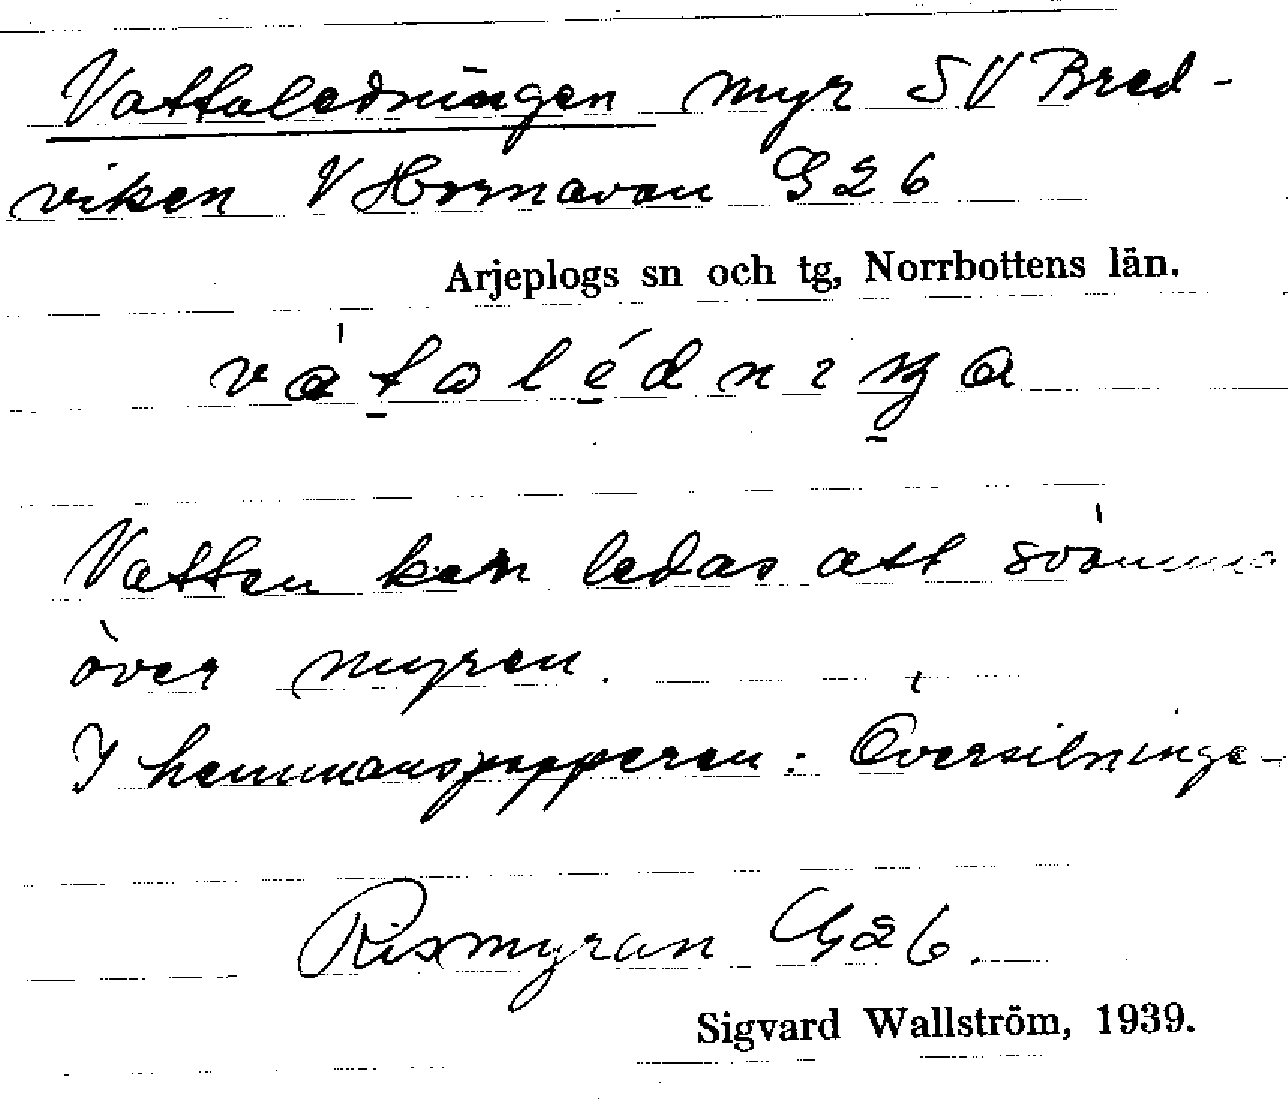 Vattaledningen myr SV Bred-
viken V Hornavan G26
Arjeplogs sn och tg, Norrbottens län.
Vatten kan ledas att svämma
över myren.
I hemmanspapperen: Översilnings-
Rismyran G26.
Sigvard Wallström, 1939.